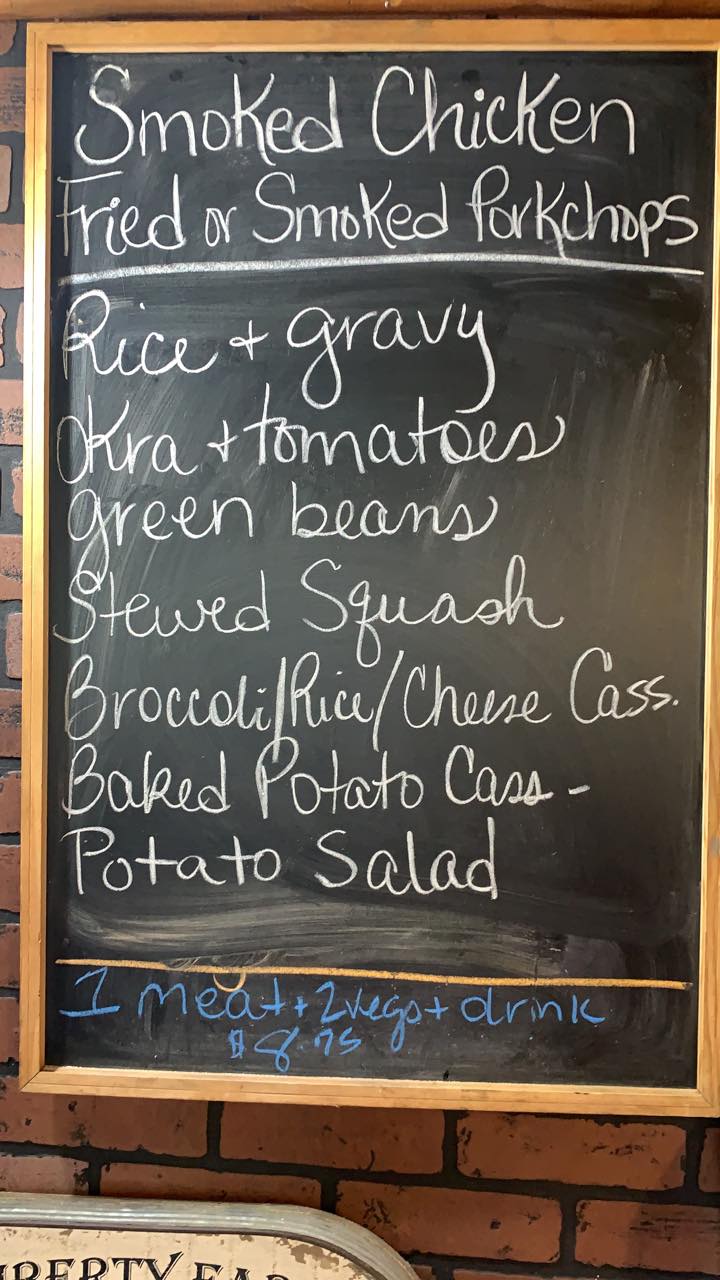 Smoked Chicken
Fried or Smoked Porkchops
Rice + gravy
Okra + tomatoes
green beans
Stewed Squash
Broccoli/Rice/Cheese Cass.
Baked Potato Cass-
Potato Salad
1 meat + 2 vegs + drink
$8.75